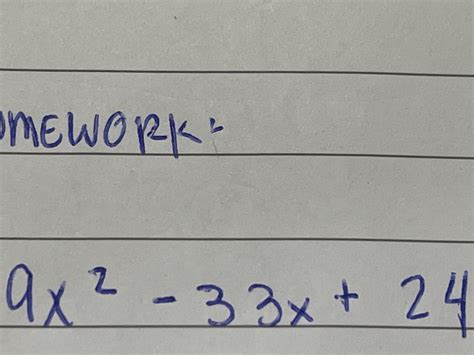 OMEWORK:
9x² - 33x + 24